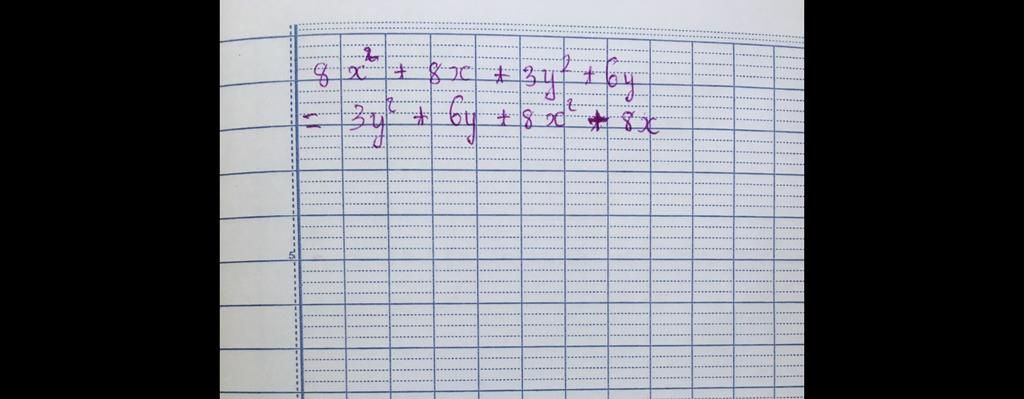 8x² + 8x + 3y² + 6y
= 3y² + 6y + 8x² + 8x
5